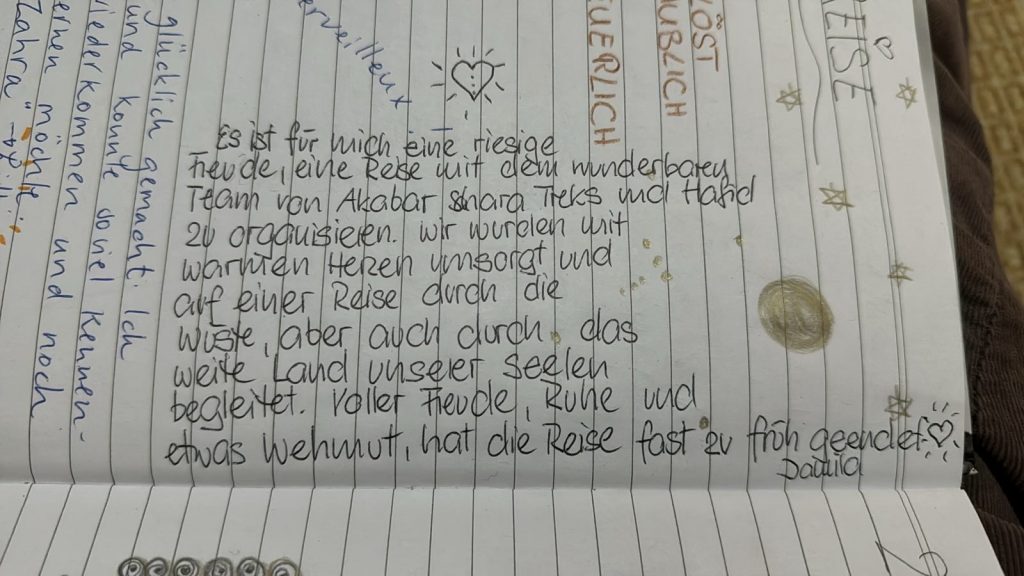 Es ist für mich eine riesige
Freude, eine Reise mit dem wunderbaren
Team von Akabar Shara Treks und Hafid
zu organisieren. Wir wurden mit
warmen Herzen umsorgt und
auf einer Reise durch die
Wüste, aber auch durch das
weite Land unserer Seelen
begleitet. Voller Freude, Ruhe und
etwas Wehmut, hat die Reise fast zu früh geendet.
glücklich gemacht. Ich
und konnte soviel kennen-
wiederkommen und noch
lernen möchte
Zahra
erveilleux
EUERLICH
AUBLICH
LÖST
REISE